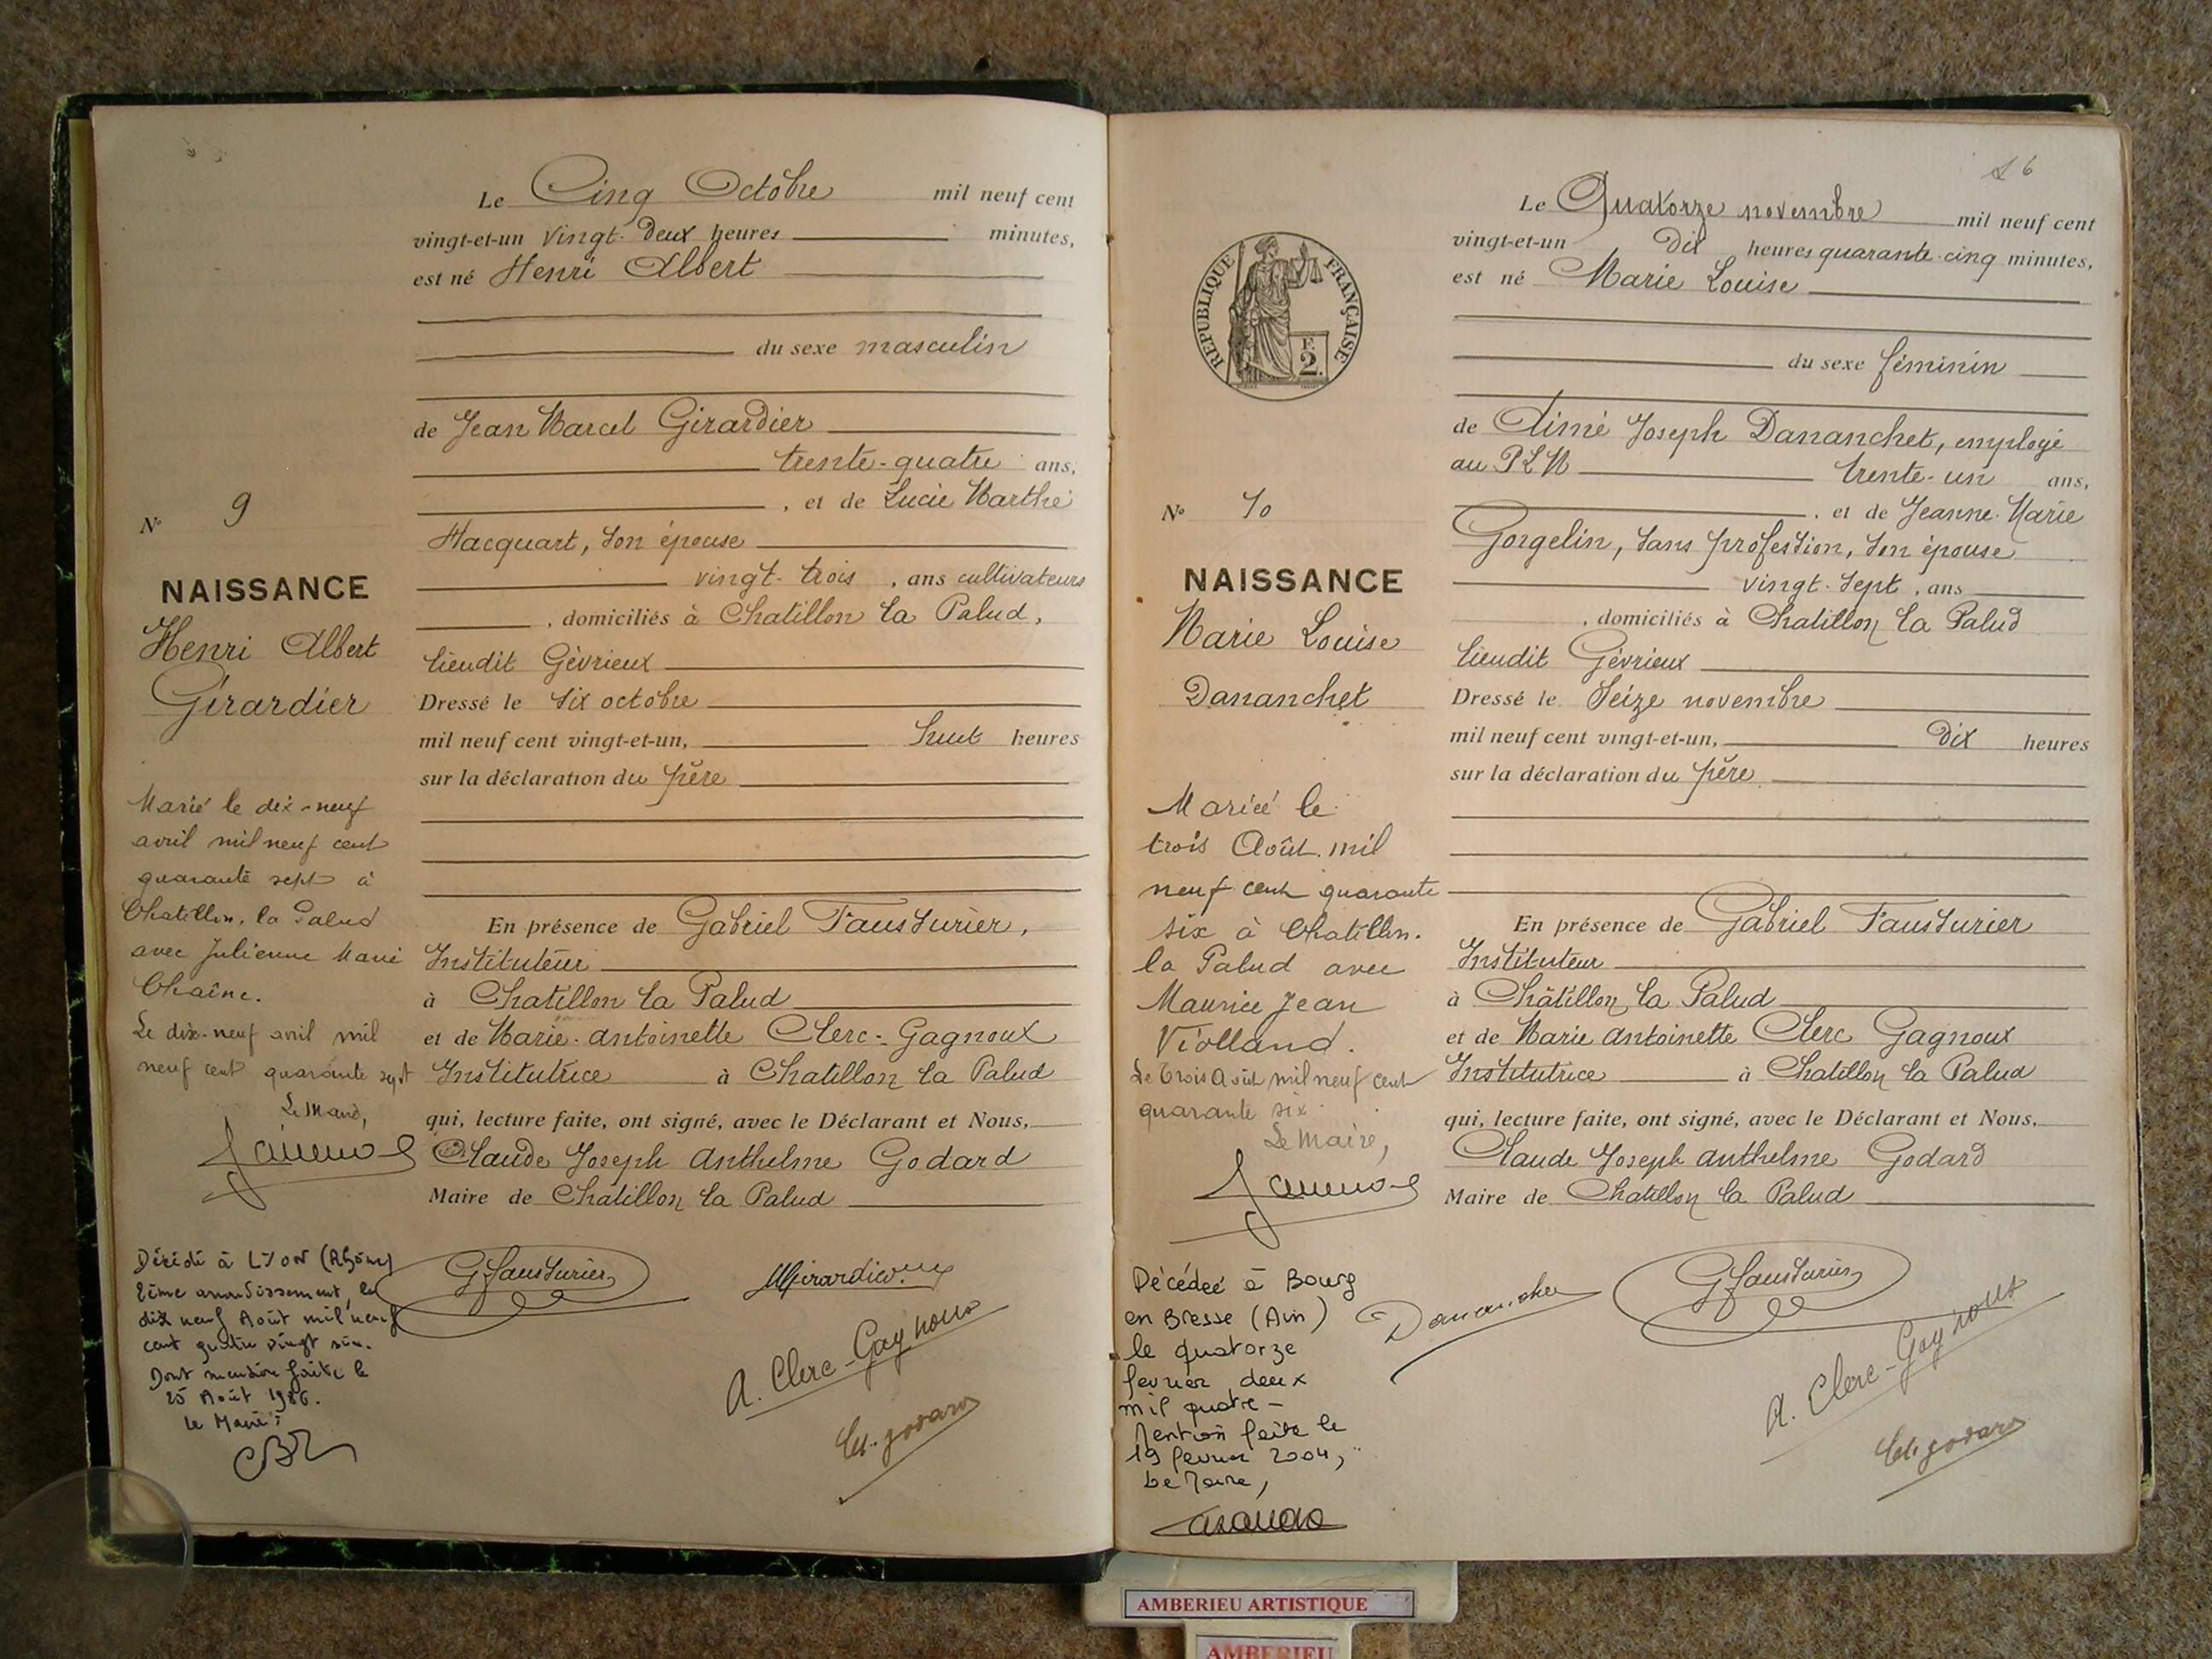 Le Cinq Octobre mil neuf cent
vingt-et-un vingt-deux heures minutes,
est né Henri Albert
du sexe masculin
de Jean Marcel Girardier
trente-quatre ans,
, et de Lucie Marthe
Hacquart, son épouse
vingt-trois , ans cultivateurs
, domiciliés à Chatillon la Palud,
lieudit Gévrieux
Dressé le six octobre
mil neuf cent vingt-et-un, huit heures
sur la déclaration du père
En présence de Gabriel Fausturier,
Instituteur
à Chatillon la Palud
et de Marie-Antoinette Clerc-Gagnoux
Institutrice à Chatillon la Palud
qui, lecture faite, ont signé, avec le Déclarant et Nous,
Claude Joseph Anthelme Godard
Maire de Chatillon la Palud
N° 9
NAISSANCE
Henri Albert
Girardier
Marié le dix-neuf
avril mil neuf cent
quarante sept à
Chatillon-la Palud
avec Julienne Marie
Chaîne.
Le dix-neuf avril mil
neuf cent quarante sept
Le Maire,
Décédé à LYON (Rhône)
8ème arrondissement, le
dix neuf Août mil neuf
cent quatre vingt six.
Dont mention faite le
25 Août 1986.
le Maire :
G Fausturier
MGirardier
A. Clerc-Gagnoux
Cl. godard
16
Le Quatorze novembre mil neuf cent
vingt-et-un Dix heures quarante-cinq minutes,
est né Marie Louise
REPUBLIQUE FRANÇAISE
F. 2.
du sexe féminin
de Aimé Joseph Dananchet, employé
au PLM trente-un ans,
, et de Jeanne-Marie
Gorgelin, sans profession, son épouse
vingt-sept , ans
, domiciliés à Chatillon la Palud
lieudit Gévrieux
Dressé le Seize novembre
mil neuf cent vingt-et-un, dix heures
sur la déclaration du père
En présence de Gabriel Fausturier
Instituteur
à Châtillon la Palud
et de Marie Antoinette Clerc Gagnoux
Institutrice à Chatillon la Palud
qui, lecture faite, ont signé, avec le Déclarant et Nous,
Claude Joseph Anthelme Godard
Maire de Chatillon la Palud
N° 10
NAISSANCE
Marie Louise
Dananchet
Mariée le
trois Août mil
neuf cent quarante
six à Chatillon-
la Palud avec
Maurice Jean
Violland.
Le trois Août mil neuf cent
quarante six
Le Maire,
Décédée à Bourg
en Bresse (Ain)
le quatorze
février deux
mil quatre -
Mention faite le
19 février 2004,
Le Maire,
Dananchet
G Fausturier
A. Clerc-Gagnoux
Cl. godard
AMBERIEU ARTISTIQUE
AMBERIEU